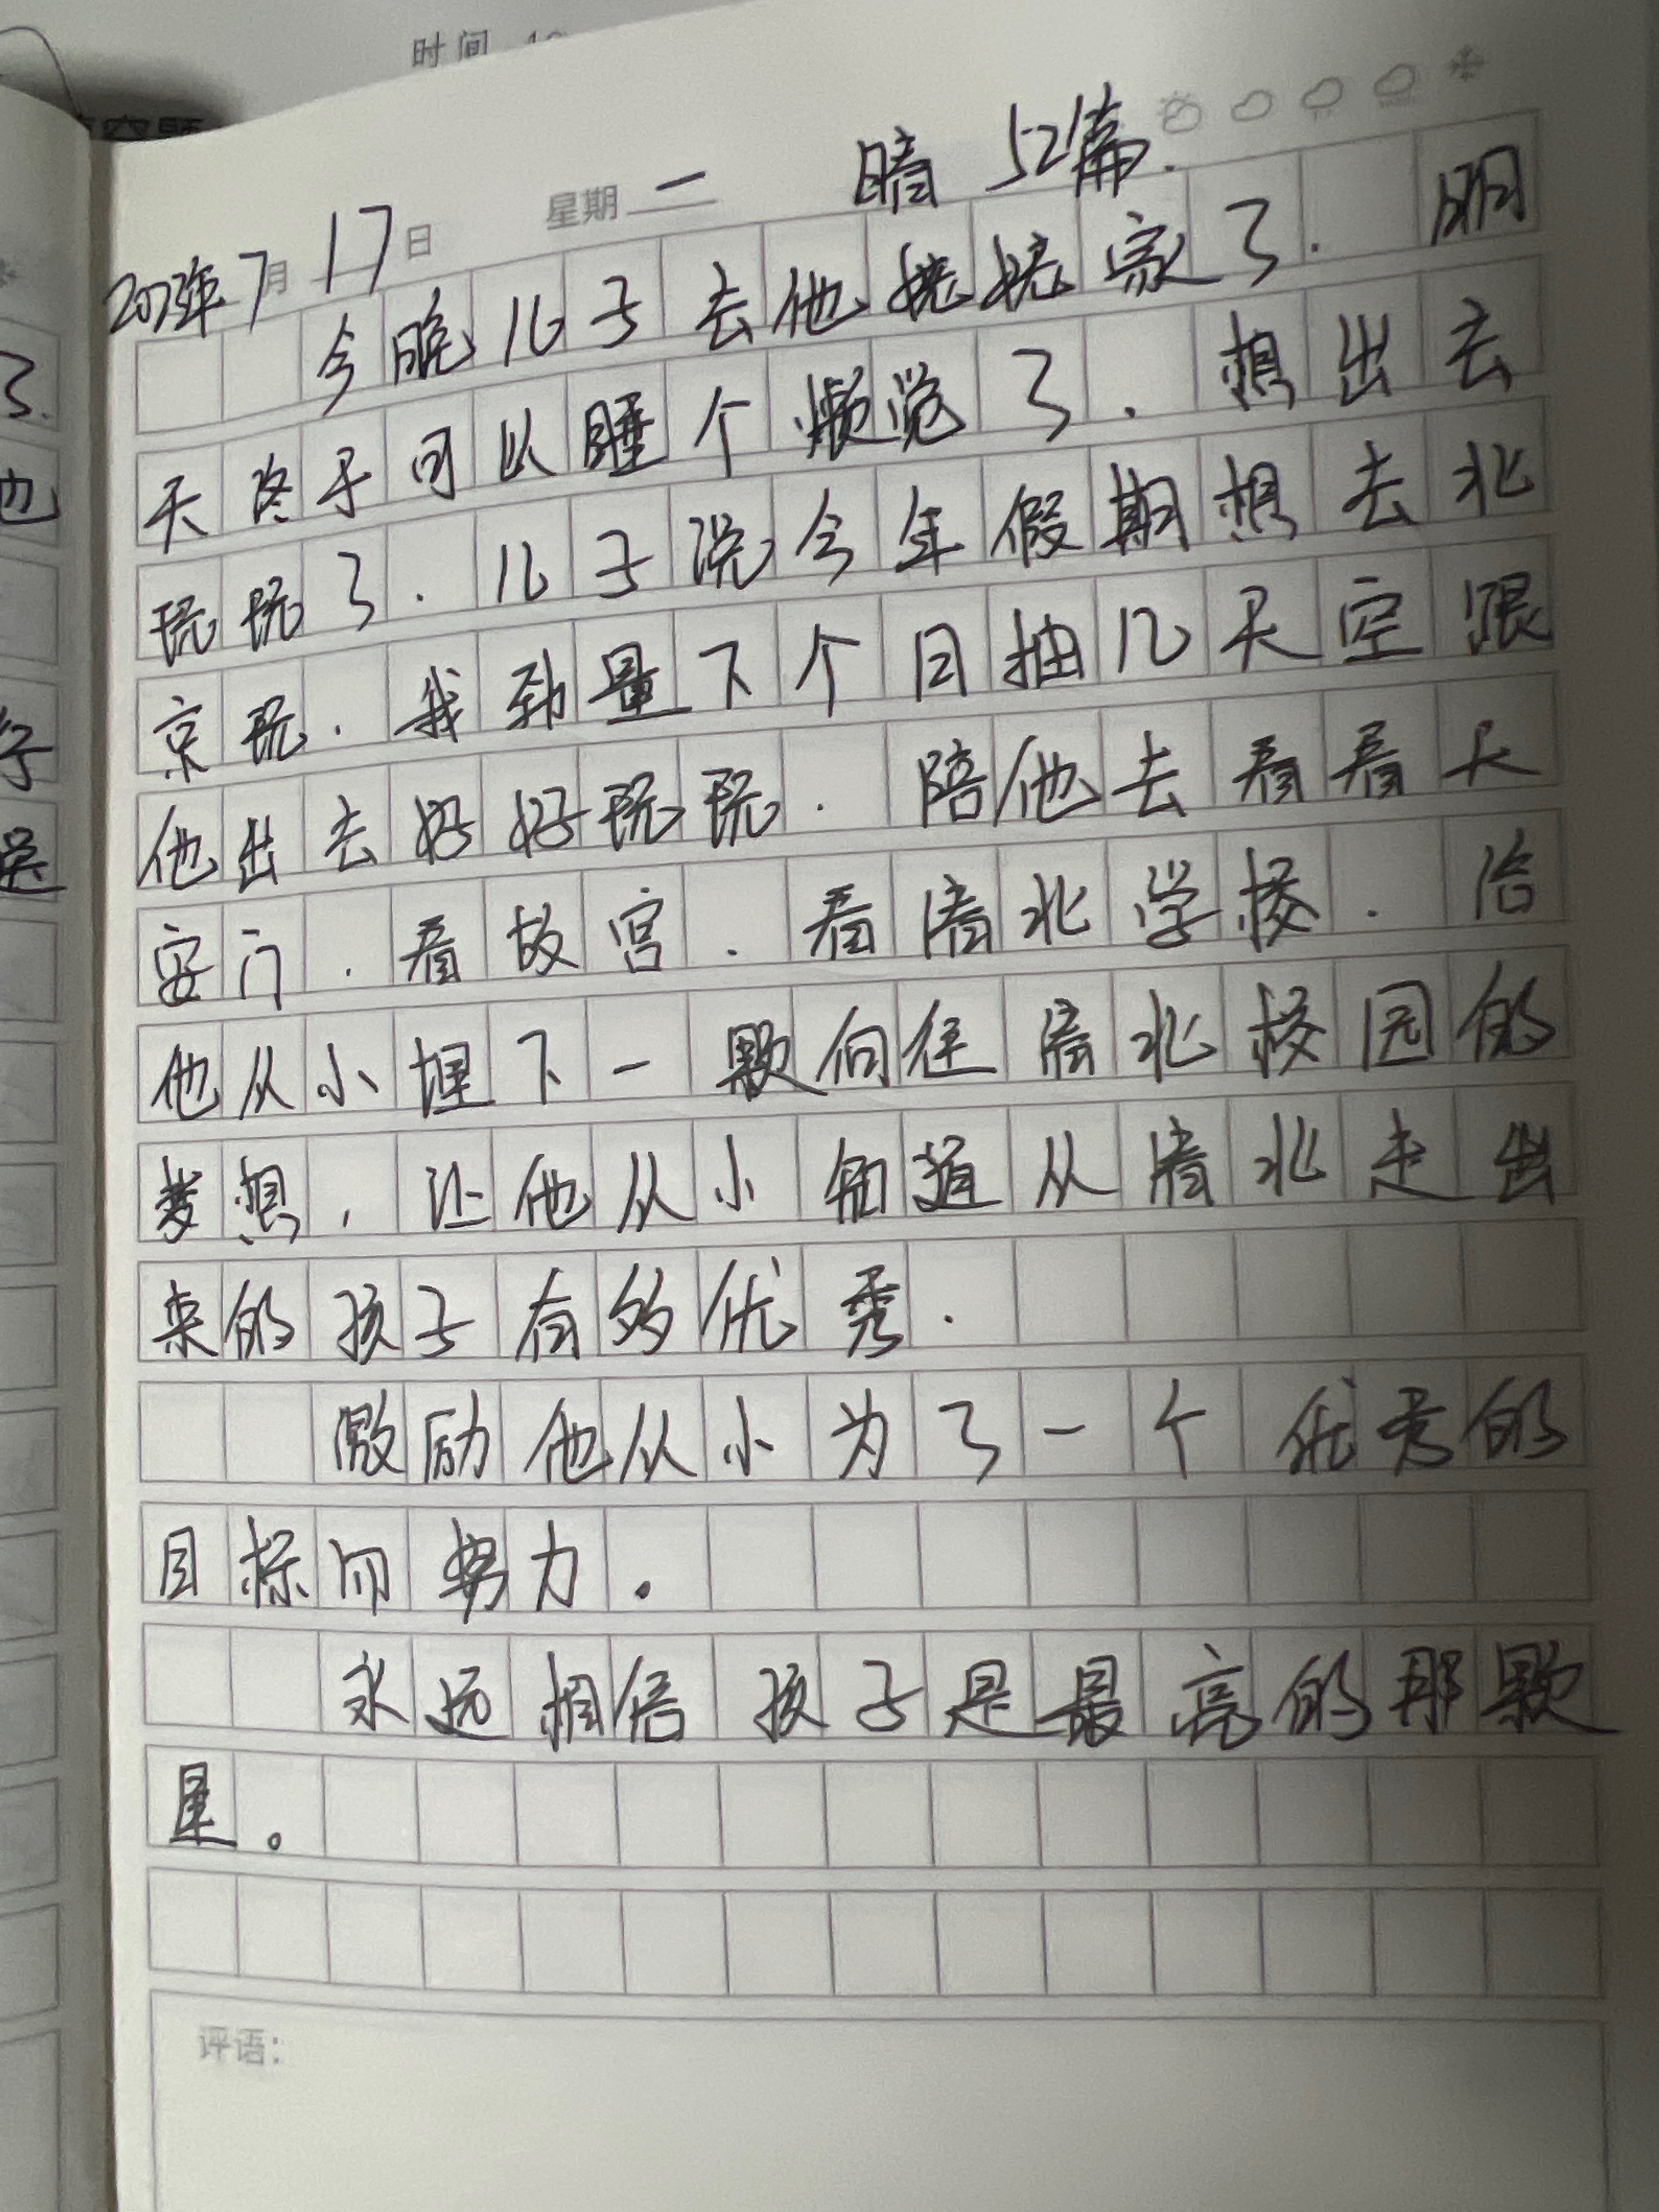 时间
2023年7月17日 星期二 晴 52篇.
今晚儿子去他姥姥家了. 明
天终于可以睡个懒觉了. 想出去
玩玩了. 儿子说今年假期想去北
京玩. 我劲量下个月抽几天空跟
他出去好好玩玩. 陪他去看看天
安门. 看故宫. 看清北学校. 给
他从小埋下一颗向往清北校园的
梦想, 让他从小知道从清北走出
来的孩子有多优秀.
激励他从小为了一个优秀的
目标而努力.
永远相信孩子是最亮的那颗
星。
评语: